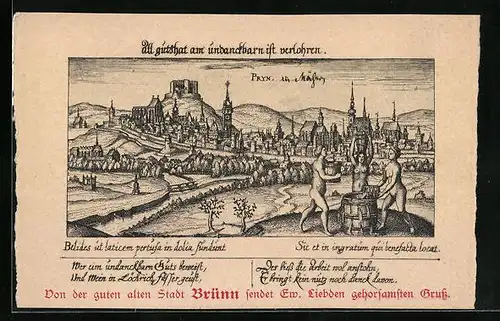 All gutshat am undanckbarn ist verlohren.
PRYN. in Mähren
Belides ut laticem pertusa in dolia fundunt
Sic et in ingratum qui benefacta locat.
Wer eim undanckbarn Guts beweist,
Und Wein in Löchrich fässer geust,
Der laß die arbeit wol anstohn,
Er bringt kein nutz noch danck davon.
Von der guten alten Stadt Brünn sendet Ew. Liebden gehorsamsten Gruß.